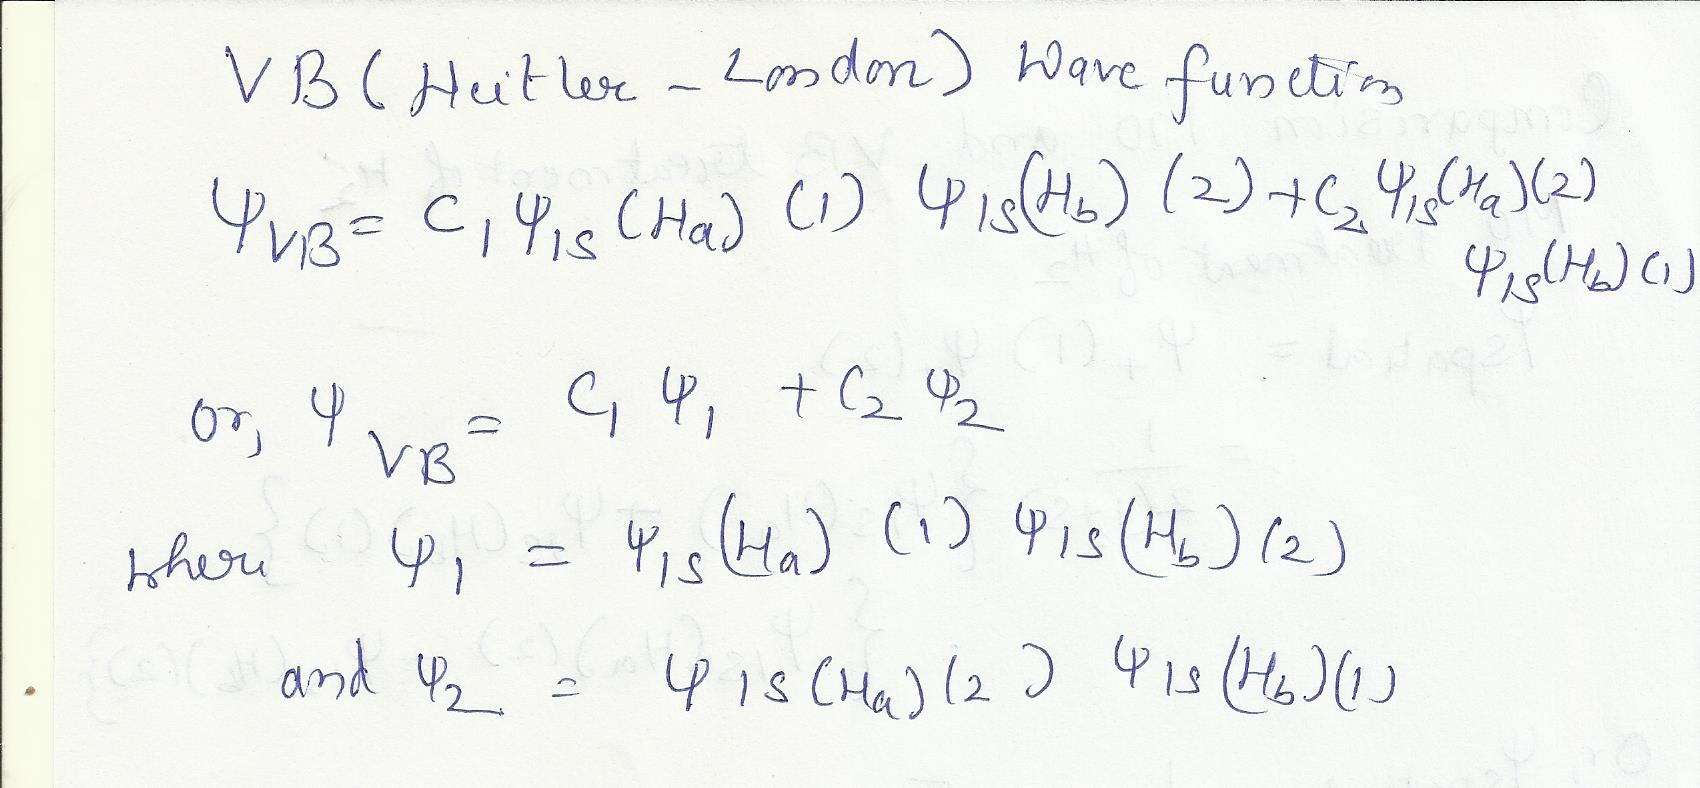 VB (Heitler - London) Wave function
Ψ_VB = C₁ Ψ₁s (Ha) (1) Ψ₁s(H_b) (2) + C₂ Ψ₁s(Ha)(2)
Ψ₁s(H_b) (1)
or, Ψ_VB = C₁ Ψ₁ + C₂ Ψ₂
where Ψ₁ = Ψ₁s (Ha) (1) Ψ₁s (H_b) (2)
and Ψ₂ = Ψ₁s (Ha) (2) Ψ₁s (H_b) (1)